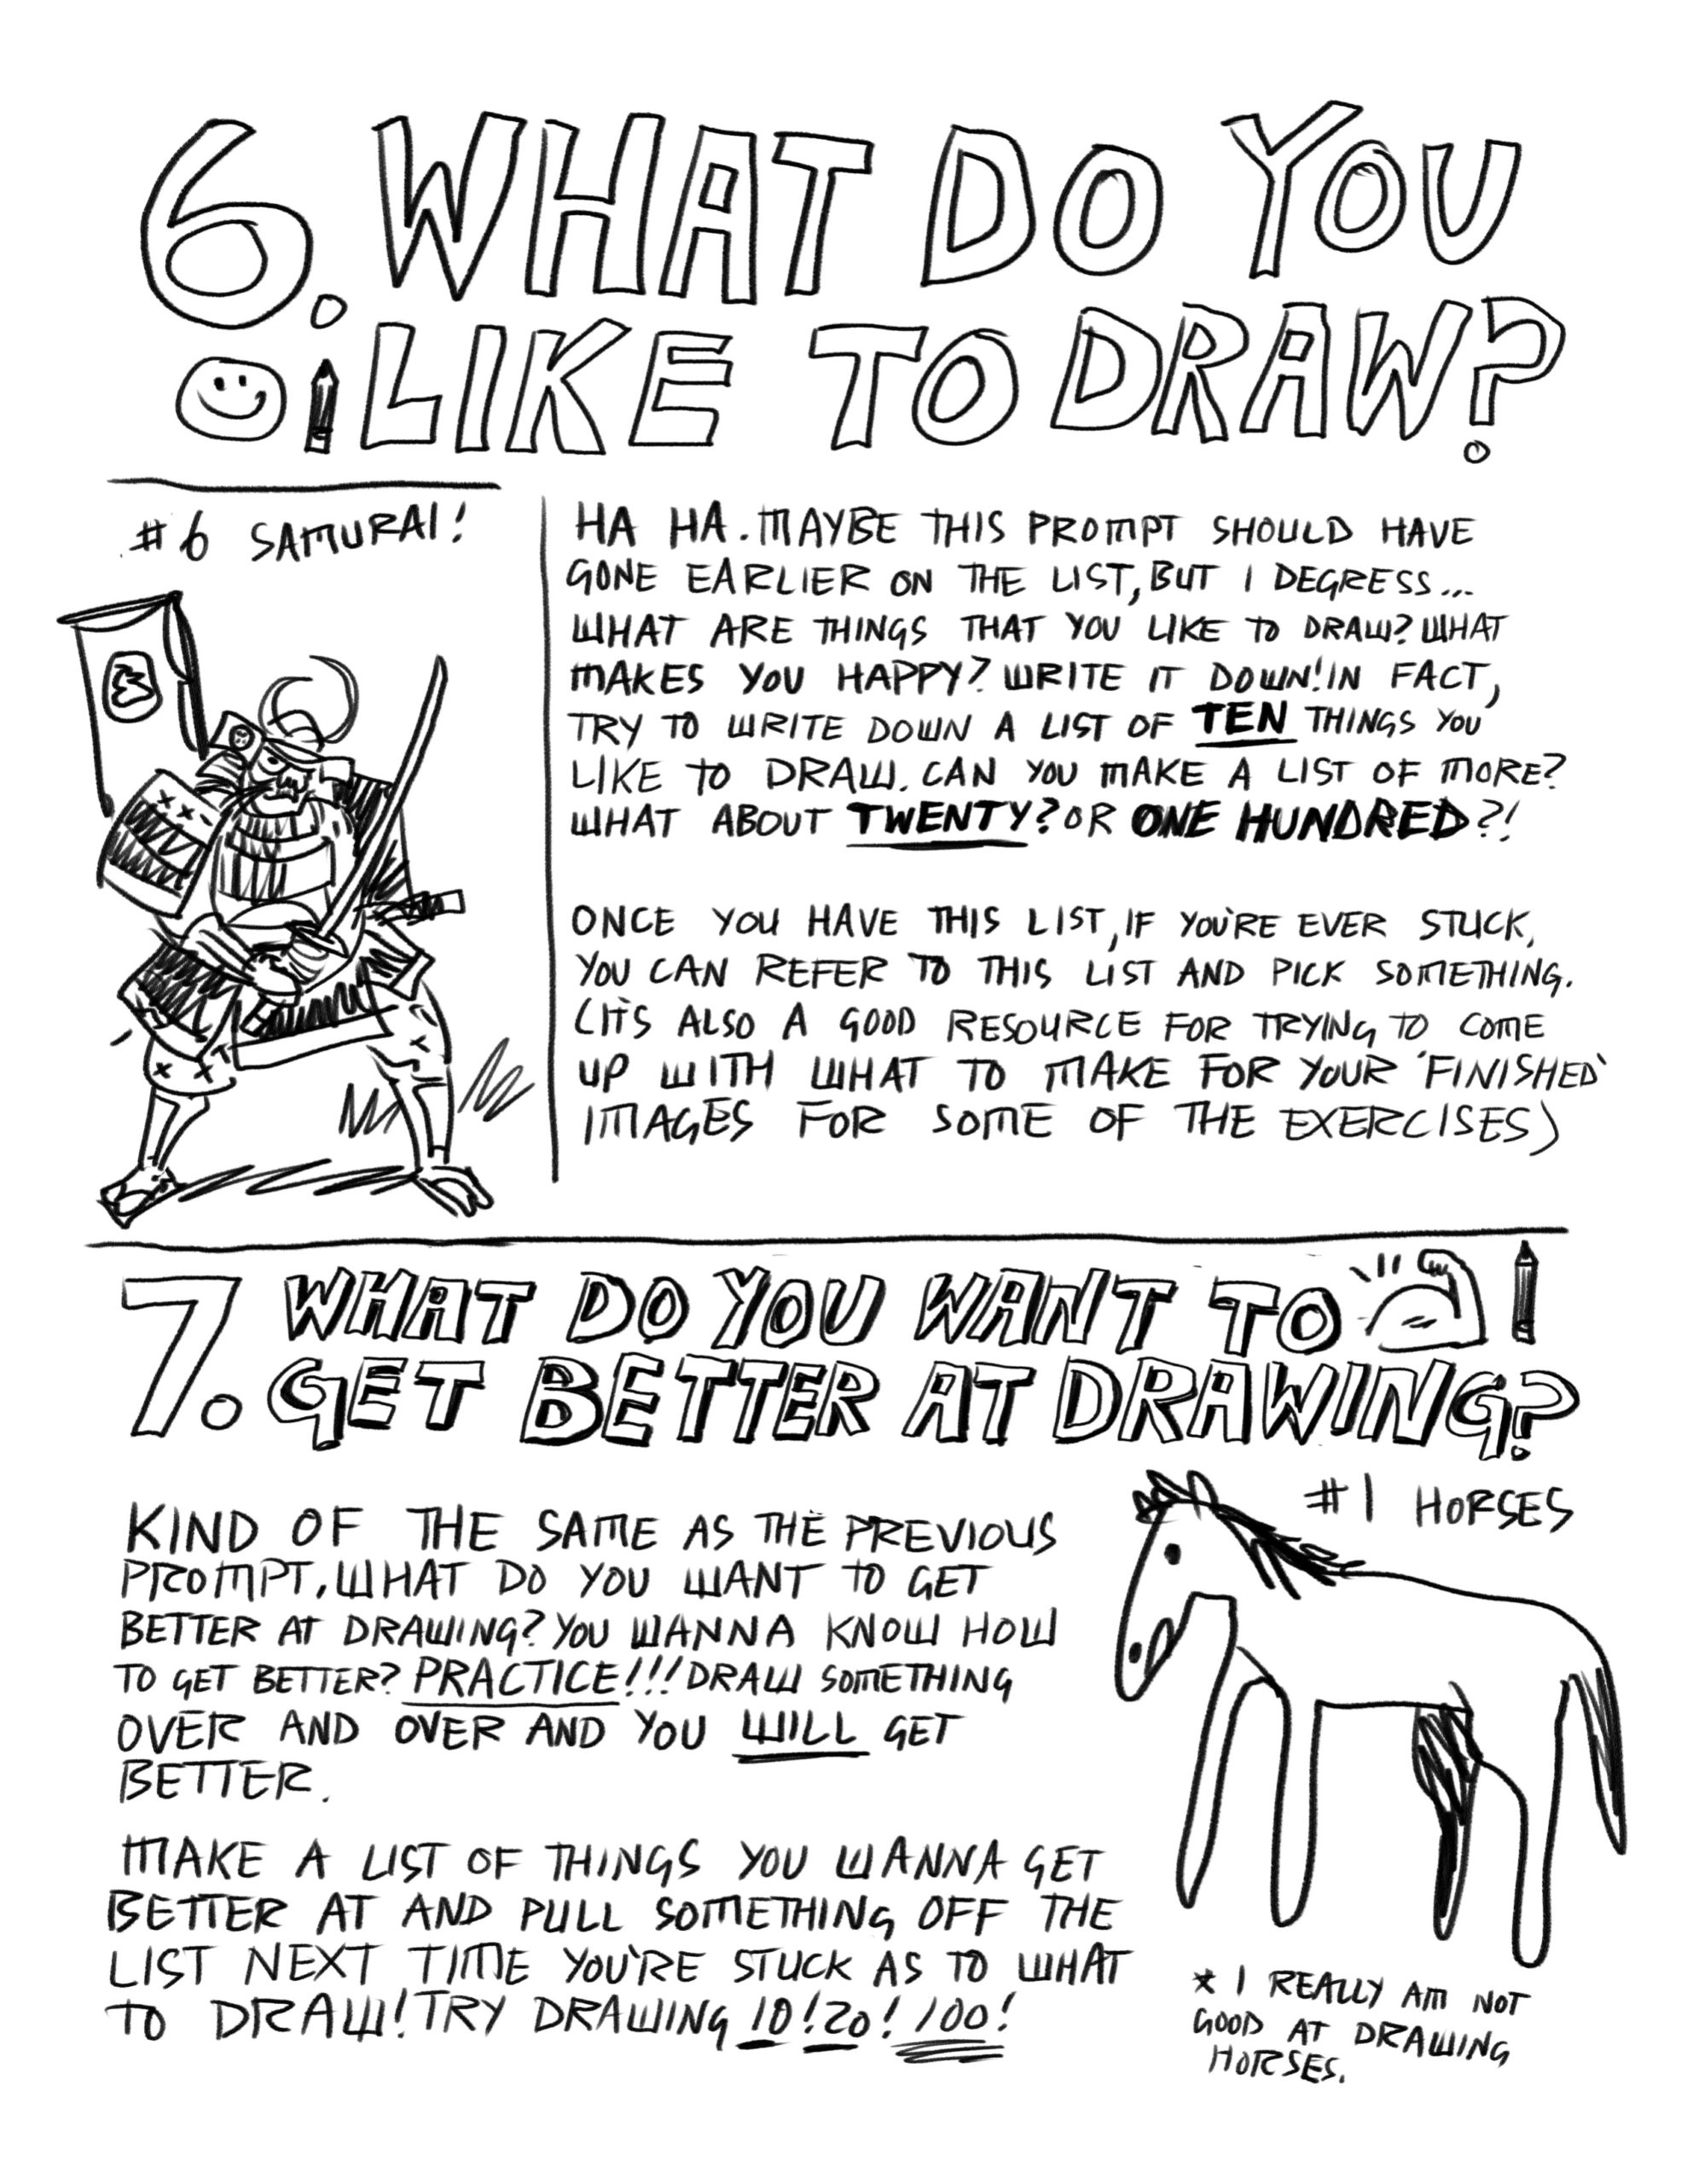 6. WHAT DO YOU
LIKE TO DRAW?
#6 SAMURAI!
HA HA. MAYBE THIS PROMPT SHOULD HAVE
GONE EARLIER ON THE LIST, BUT I DEGRESS...
WHAT ARE THINGS THAT YOU LIKE TO DRAW? WHAT
MAKES YOU HAPPY? WRITE IT DOWN! IN FACT,
TRY TO WRITE DOWN A LIST OF TEN THINGS YOU
LIKE TO DRAW. CAN YOU MAKE A LIST OF MORE?
WHAT ABOUT TWENTY? OR ONE HUNDRED?!
ONCE YOU HAVE THIS LIST, IF YOU'RE EVER STUCK,
YOU CAN REFER TO THIS LIST AND PICK SOMETHING.
(IT'S ALSO A GOOD RESOURCE FOR TRYING TO COME
UP WITH WHAT TO MAKE FOR YOUR 'FINISHED'
IMAGES FOR SOME OF THE EXERCISES)
7. WHAT DO YOU WANT TO
GET BETTER AT DRAWING?
#1 HORSES
KIND OF THE SAME AS THE PREVIOUS
PROMPT. WHAT DO YOU WANT TO GET
BETTER AT DRAWING? YOU WANNA KNOW HOW
TO GET BETTER? PRACTICE!!! DRAW SOMETHING
OVER AND OVER AND YOU WILL GET
BETTER.
MAKE A LIST OF THINGS YOU WANNA GET
BETTER AT AND PULL SOMETHING OFF THE
LIST NEXT TIME YOU'RE STUCK AS TO WHAT
TO DRAW! TRY DRAWING 10! 20! 100!
* I REALLY AM NOT
GOOD AT DRAWING
HORSES.